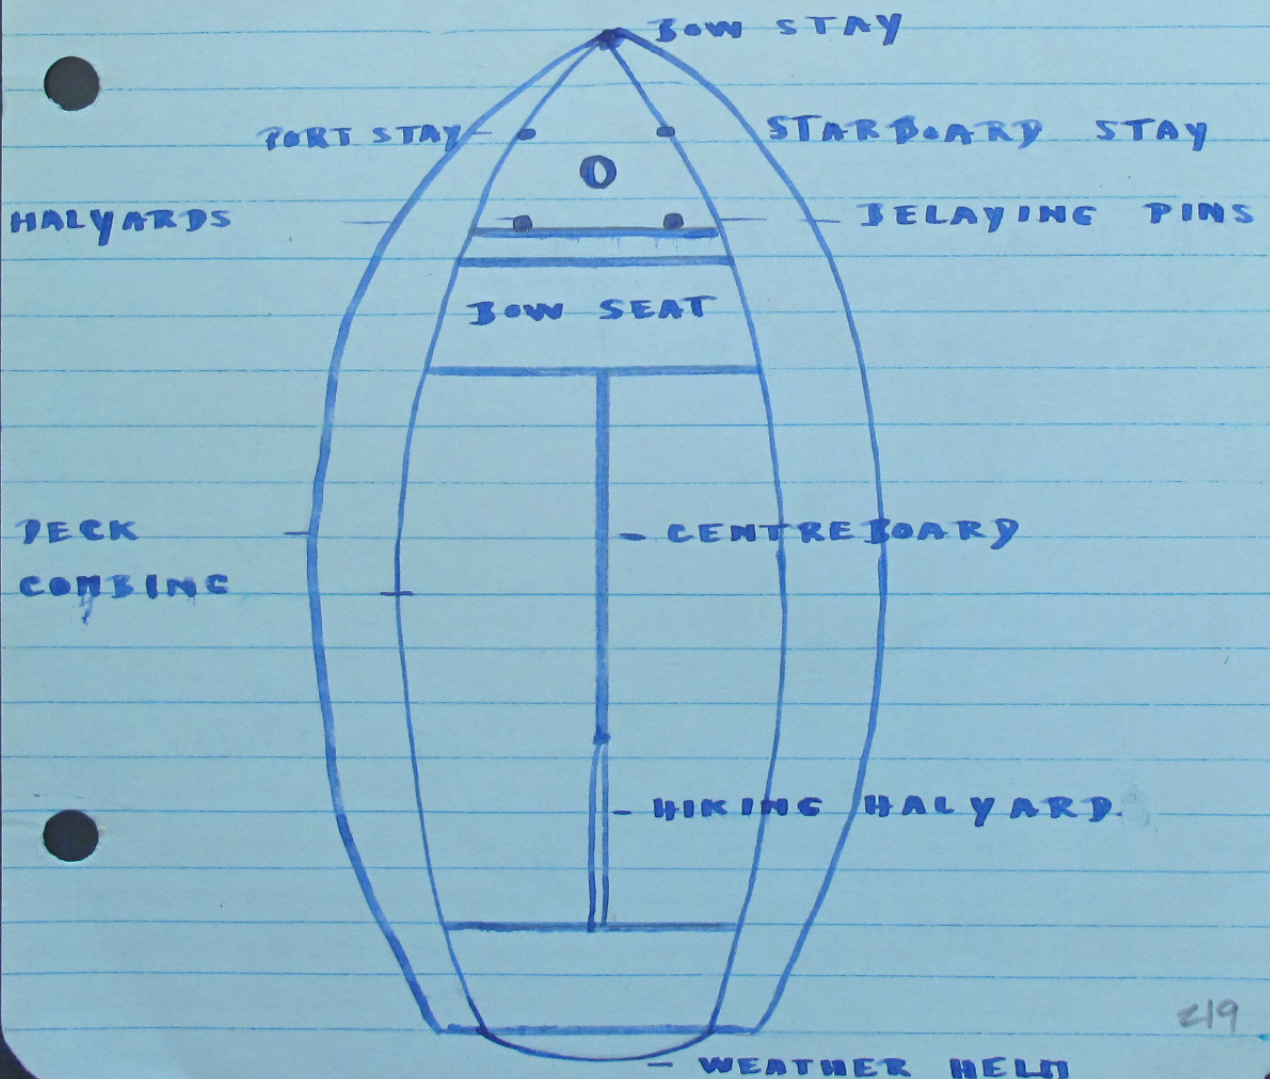 BOW STAY
PORT STAY
STARBOARD STAY
HALYARDS
BELAYING PINS
BOW SEAT
DECK
CENTREBOARD
COMBING
HIKING HALYARD.
219
WEATHER HELM